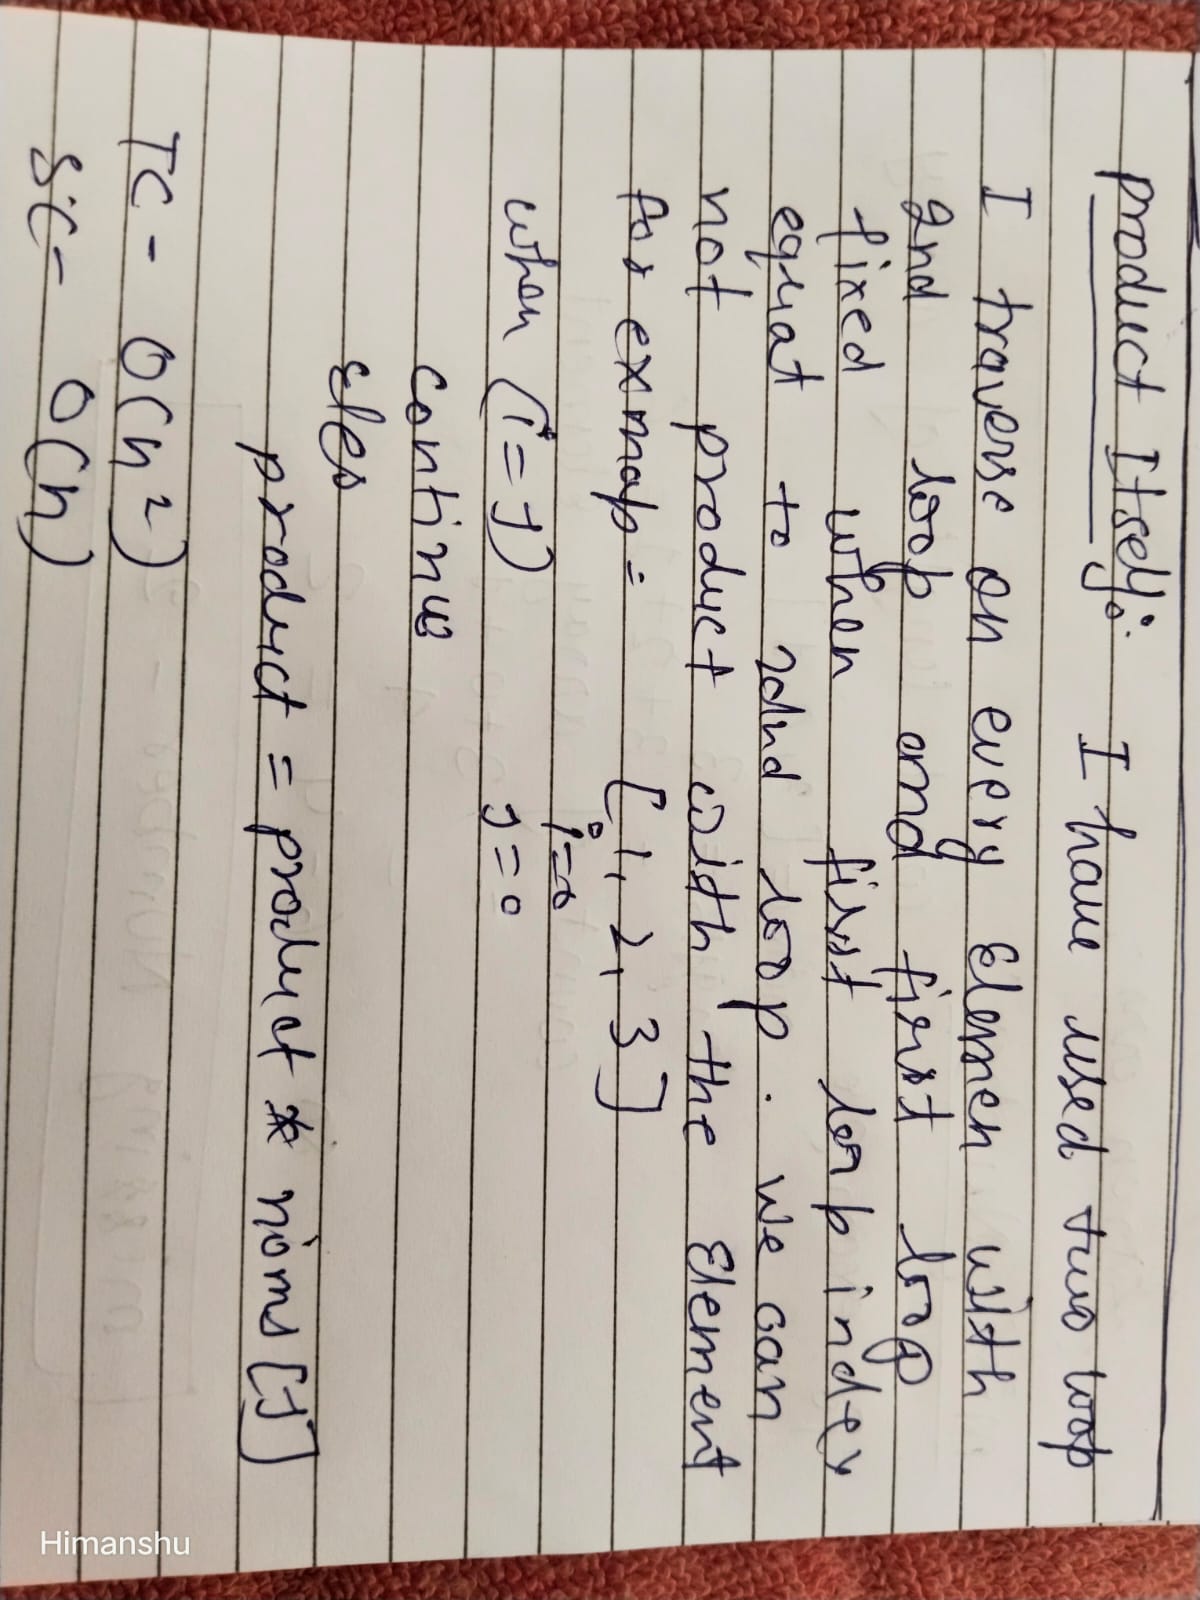 product Itself:  I have used two loop
I traverse on every Elemen with
2nd loop and first loop
fixed when first loop index
equat to 2dnd loop. we can
not product with the Element
for exmap = [1, 2, 3]
i=0
when (i=J) J=0
continue
eles
product = product * noms[J]
TC - O(n²)
SC - O(n)
Himanshu